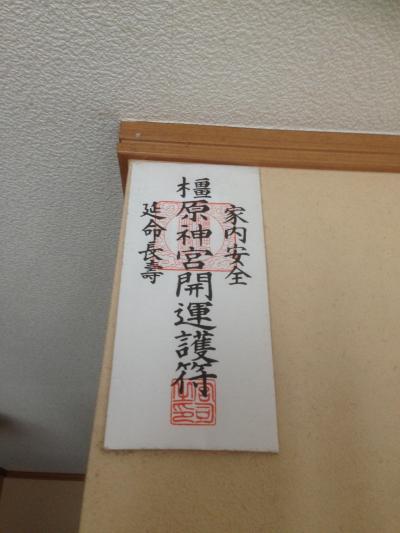 家内安全
橿原神宮開運護符
延命長壽